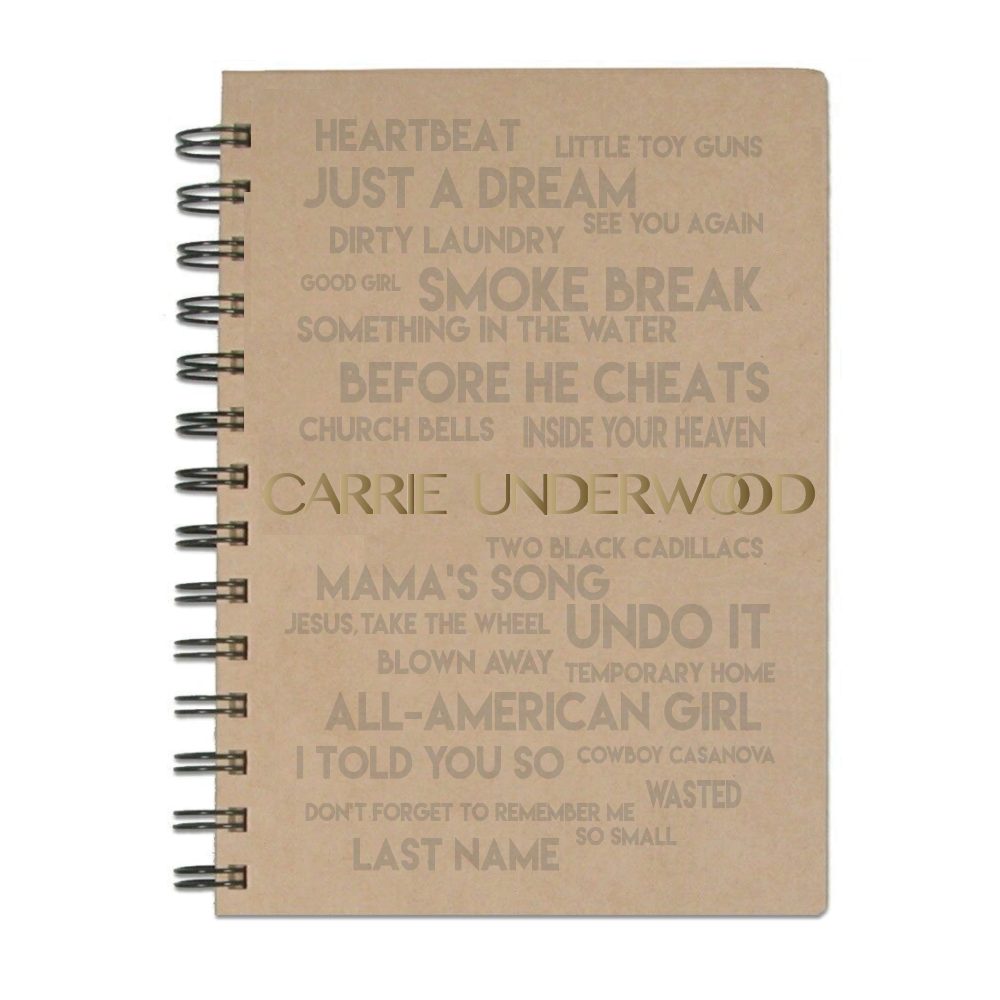 HEARTBEAT
LITTLE TOY GUNS
JUST A DREAM
SEE YOU AGAIN
DIRTY LAUNDRY
GOOD GIRL
SMOKE BREAK
SOMETHING IN THE WATER
BEFORE HE CHEATS
CHURCH BELLS
INSIDE YOUR HEAVEN
CARRIE UNDERWOOD
TWO BLACK CADILLACS
MAMA'S SONG
JESUS, TAKE THE WHEEL
UNDO IT
BLOWN AWAY
TEMPORARY HOME
ALL-AMERICAN GIRL
I TOLD YOU SO
COWBOY CASANOVA
WASTED
DON'T FORGET TO REMEMBER ME
SO SMALL
LAST NAME